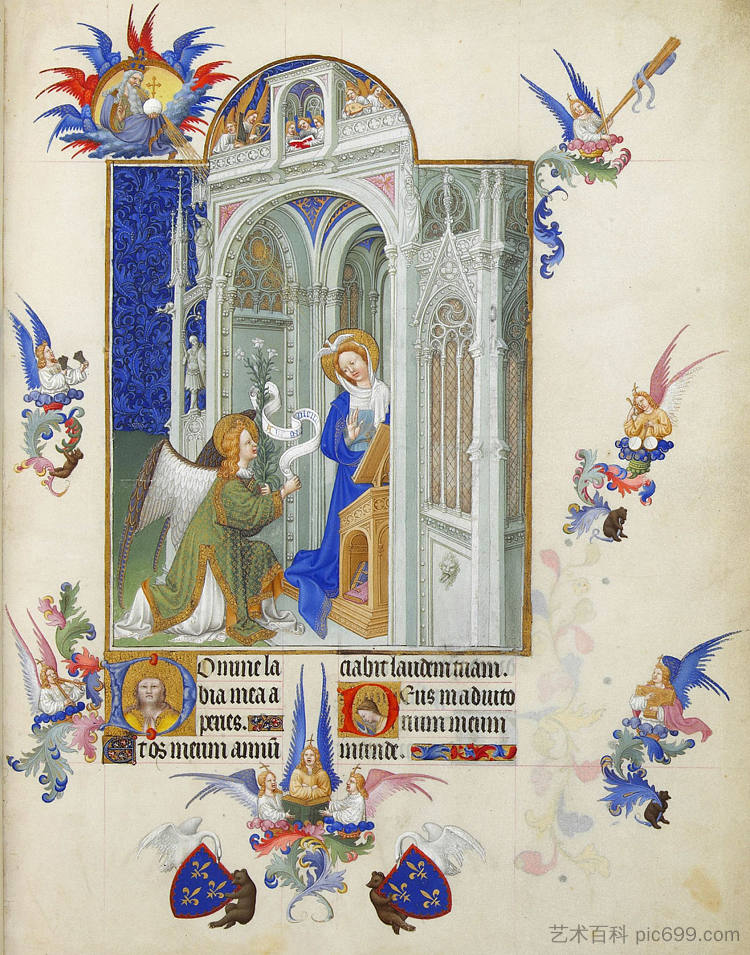 Domine la
bia mea a
peries.
Et os meum annū
ciabit laudem tuam.
Deus in adiuto
rium meum
intende.
艺术百科 pic699.com